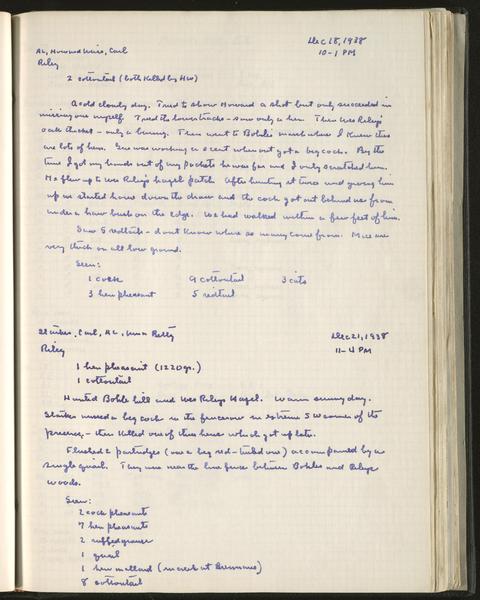 Dec 18, 1938
AL, Howard Weiss, Carl
10-1 PM
Riley
2 cottontail (both killed by HW)
A cold cloudy day. Tried to show Howard a shot but only succeeded in
missing one myself. Tried the - saw only a hen. Then Wes Riley's
oak thicket - only a bunny. Then went to Bohle's marsh where I knew there
are lots of hens. Gus was working a scent when out got a big cock. By the
time I got my hands out of my pockets he was far and I only scratched him.
He flew up to Wes Riley's hazel patch. After hunting it twice and giving him
up we started home down the draw and the cock got out behind us from
under a haw bush on the edge. We had walked within a few feet of him.
Saw 5 redtails - dont know where so many come from. Mice are
very thick on all low ground.
Seen:
1 cock 9 cottontail 3 cats
3 hen pheasant 5 redtail
Starker, Carl, AL, Betty
Dec 21, 1938
Riley
11-4 PM
1 hen pheasant (1220 gr.)
1 cottontail
Hunted Bohle hill and Wes Rileys Hazel. Warm sunny day.
Starker missed a big cock in the fencerow in extreme SW corner of the
preserve, - then killed one of three hens which got up late.
Flushed 2 partridges (one a big red-tailed one) accompanied by a
single quail. They were near the line fence between Bohles and Rileys
woods.
Seen:
2 cock pheasants
7 hen pheasants
2 ruffed grouse
1 quail
1 hen mallard (in creek at )
8 cottontail